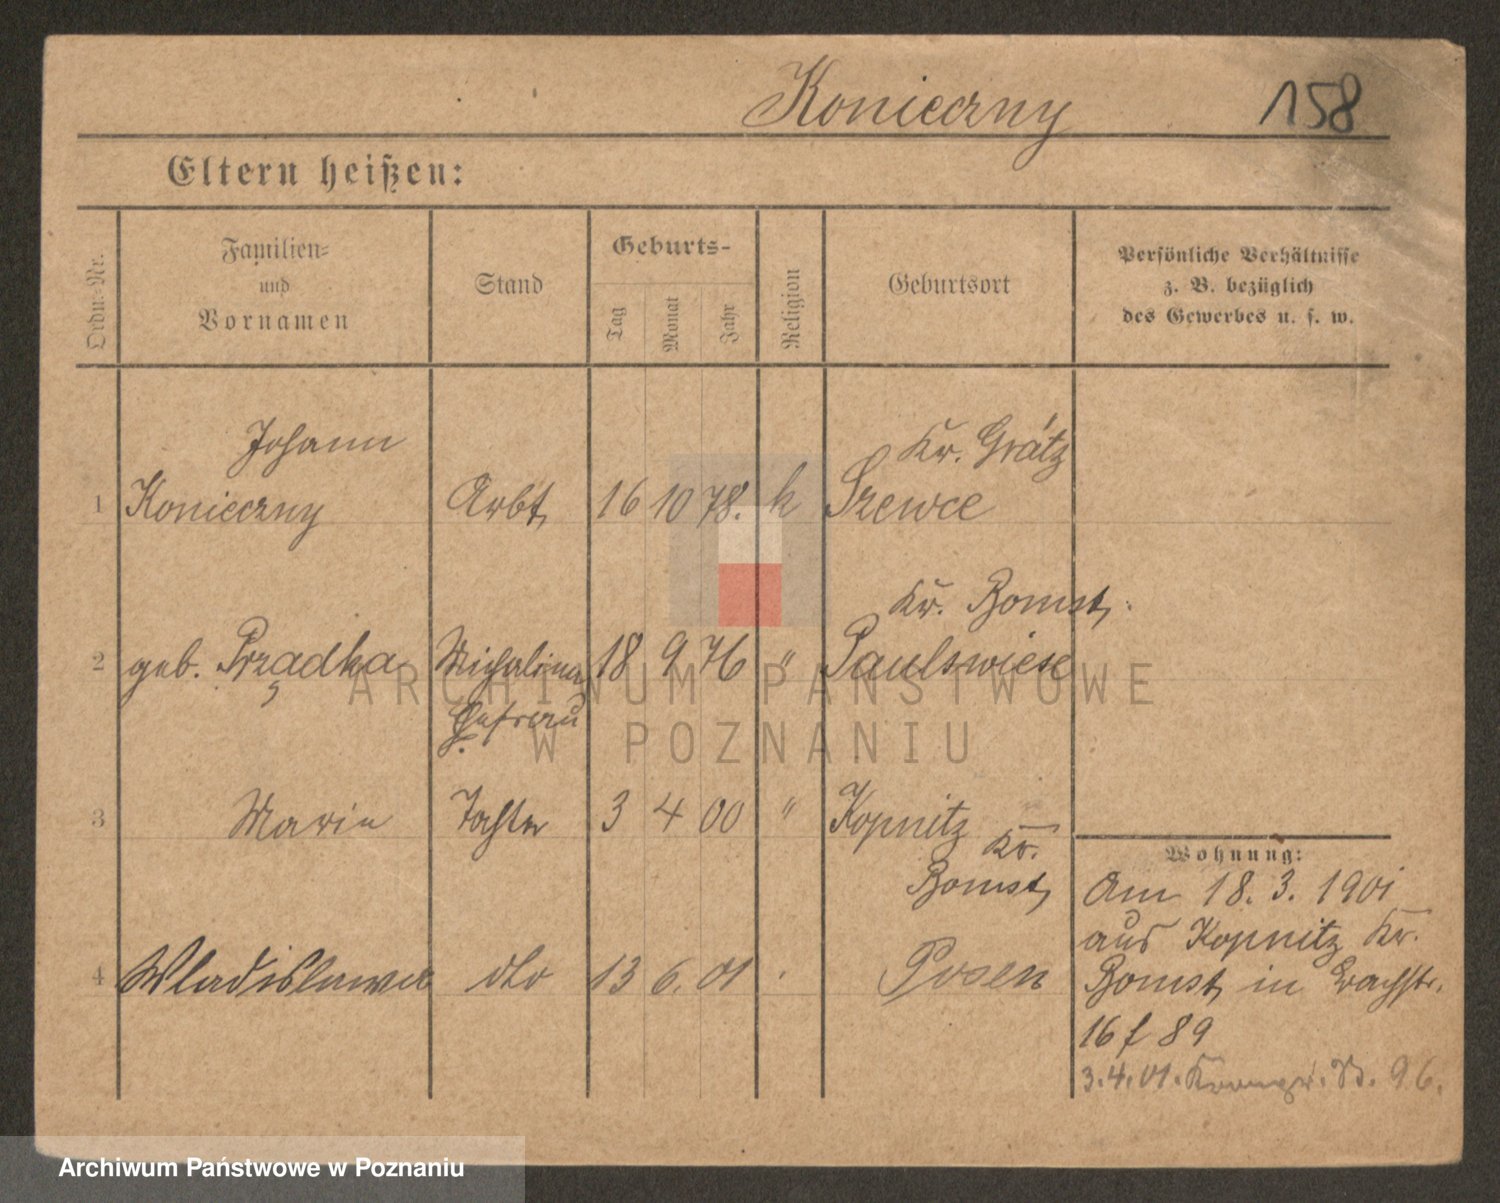 Konieczny 158
Eltern heißen:
Ordn.-Nr. Familien- und Vornamen Stand Geburts- Tag Monat Jahr Religion Geburtsort Persönliche Verhältnisse z. B. bezüglich des Gewerbes u. s. w.
Johann Kr. Grätz
1 Konieczny Arbt 16 10 78. k Szewce
Kr. Bomst
2 geb. Prządka Michalina 18 9 76 " Paulswiese
Ehefrau
3 Marie Tochter 3 4 00 " Kopnitz Kr.
Bomst
4 Wladislawa dto 13 6. 01 Posen
Wohnung:
Am 18. 3. 1901
aus Kopnitz Kr.
Bomst in
16 f 89
3.4.01. 96.
ARCHIWUM PAŃSTWOWE
W POZNANIU
Archiwum Państwowe w Poznaniu